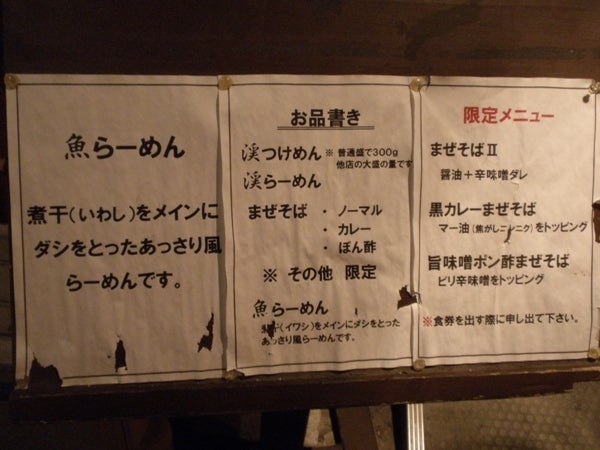 魚らーめん
煮干(いわし)をメインに
ダシをとったあっさり風
らーめんです。
お品書き
渓つけめん ※ 普通盛で300g
他店の大盛の量です
渓らーめん
まぜそば ・ ノーマル
・ カレー
・ ぽん酢
※ その他 限定
魚らーめん
煮干(イワシ)をメインにダシをとった
あっさり風らーめんです。
限定メニュー
まぜそばⅡ
醤油+辛味噌ダレ
黒カレーまぜそば
マー油(焦がしニンニク)をトッピング
旨味噌ポン酢まぜそば
ピリ辛味噌をトッピング
※食券を出す際に申し出て下さい。